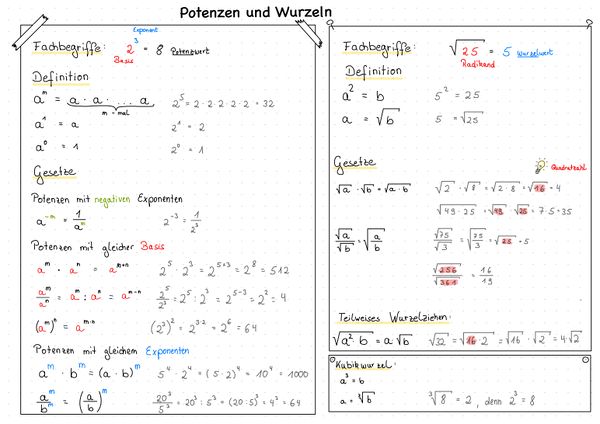 Potenzen und Wurzeln
Exponent
Fachbegriffe: 2³ = 8 Potenzwert
Basis
Definition
aᵐ = a · a · ... a
m = mal
2⁵ = 2 · 2 · 2 · 2 · 2 = 32
a¹ = a 2¹ = 2
a⁰ = 1 2⁰ = 1
Gesetze
Potenzen mit negativen Exponenten
a⁻ᵐ = 1/aᵐ 2⁻³ = 1/2³
Potenzen mit gleicher Basis
aᵐ · aⁿ = aᵐ⁺ⁿ 2⁵ · 2³ = 2⁵⁺³ = 2⁸ = 512
aᵐ/aⁿ = aᵐ : aⁿ = aᵐ⁻ⁿ 2⁵/2³ = 2⁵ : 2³ = 2⁵⁻³ = 2² = 4
(aᵐ)ⁿ = aᵐ·ⁿ (2³)² = 2³·² = 2⁶ = 64
Potenzen mit gleichem Exponenten
aᵐ · bᵐ = (a · b)ᵐ 5⁴ · 2⁴ = (5 · 2)⁴ = 10⁴ = 1000
aᵐ/bᵐ = (a/b)ᵐ 20³/5³ = 20³ : 5³ = (20 : 5)³ = 4³ = 64
Fachbegriffe: √25 = 5 Wurzelwert
Radikand
Definition
a² = b 5² = 25
a = √b 5 = √25
Gesetze
Quadratzahl
√a · √b = √a · b √2 · √8 = √2 · 8 = √16 = 4
√49 · 25 = √49 · √25 = 7 · 5 = 35
√a/√b = √a/b √75/√3 = √75/3 = √25 = 5
√256/√361 = 16/19
Teilweises Wurzelziehen:
√a² · b = a √b √32 = √16 · 2 = √16 · √2 = 4 · √2
Kubikwurzel:
a³ = b
a = ³√b ³√8 = 2, denn 2³ = 8